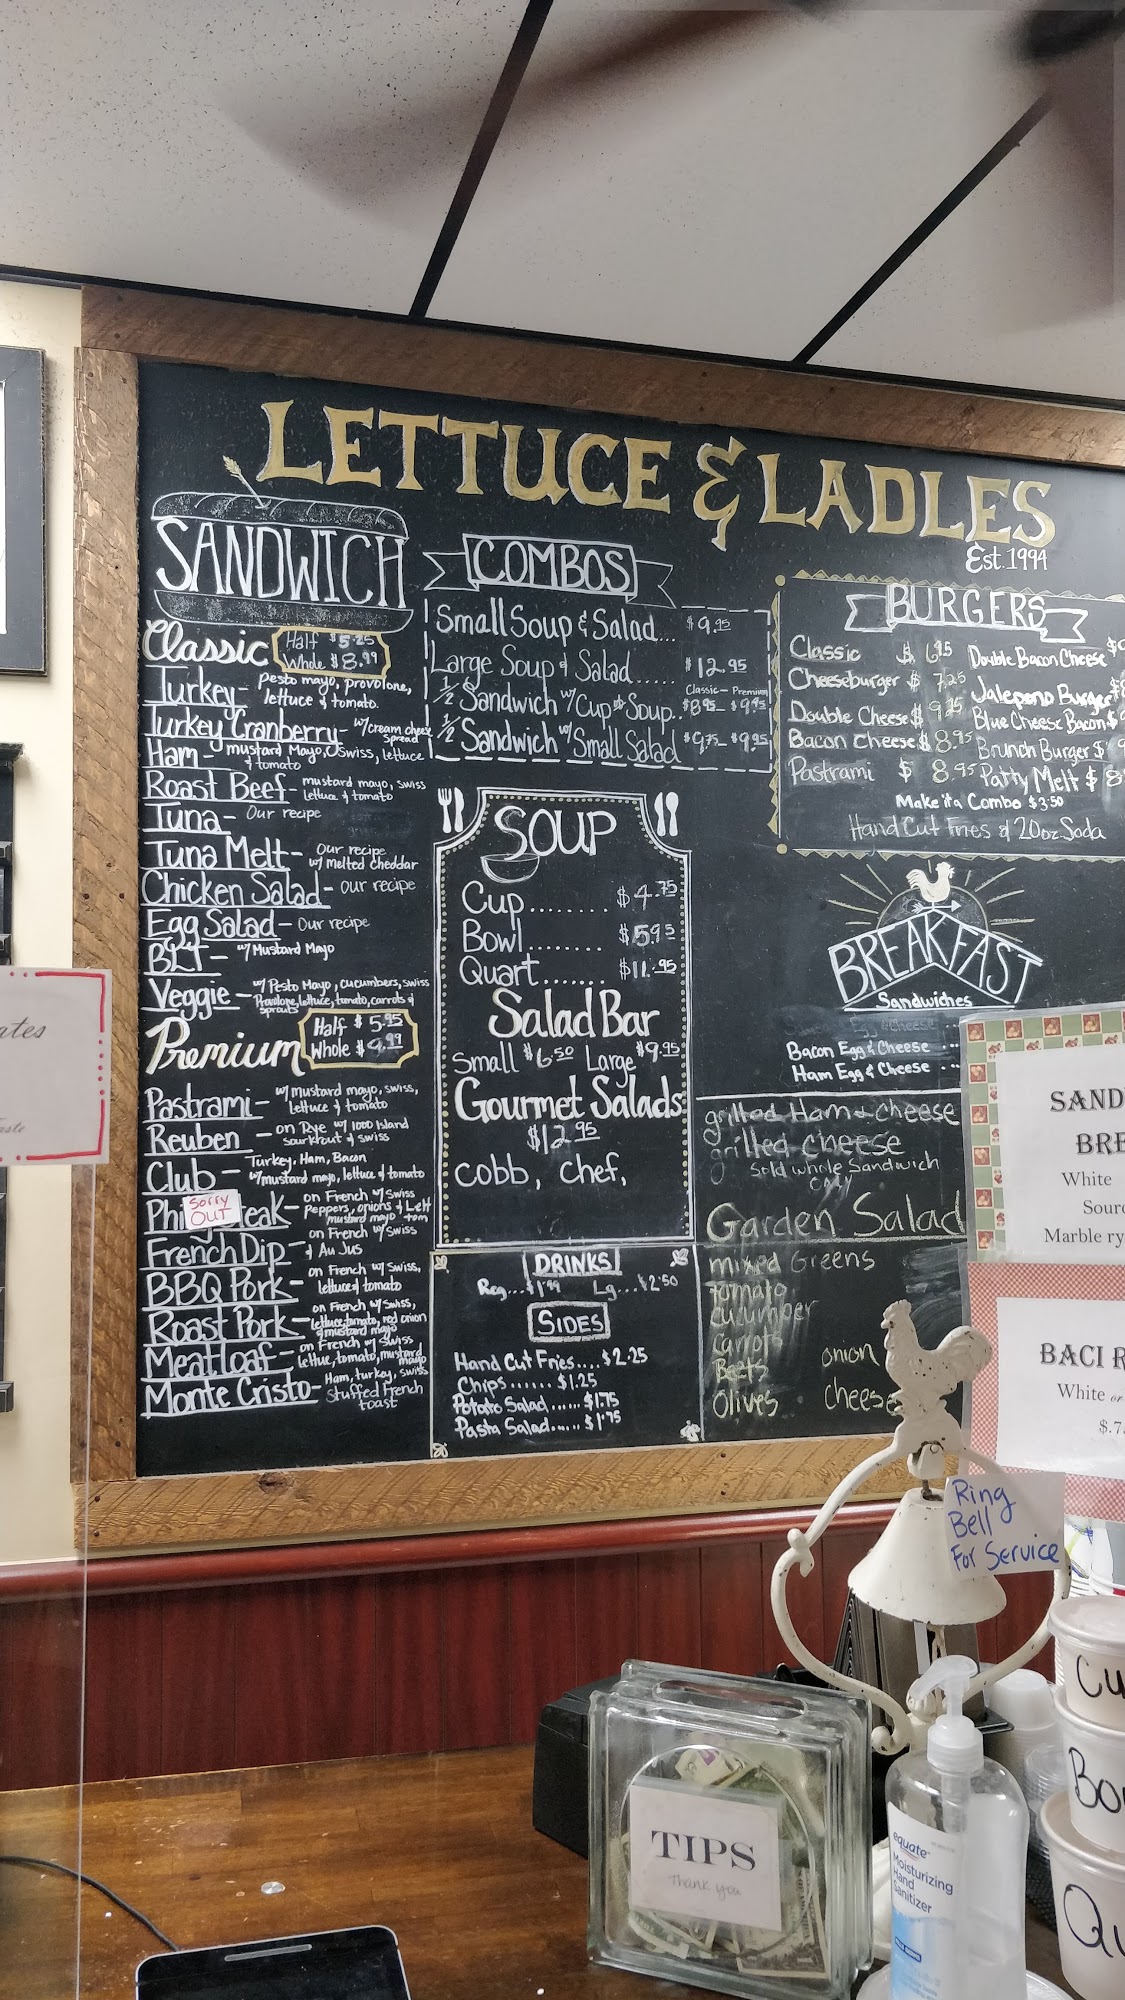 LETTUCE & LADLES
Est. 1994
SANDWICH
Classic
Half $5.25
Whole $8.99
Turkey- pesto mayo, provolone,
lettuce & tomato.
Turkey Cranberry- w/cream cheese
spread
Ham- mustard Mayo, Swiss, lettuce
& tomato
Roast Beef- mustard mayo, swiss
lettuce & tomato
Tuna- Our recipe
Tuna Melt- Our recipe
w/ melted cheddar
Chicken Salad- our recipe
Egg Salad- Our recipe
BLT- w/ Mustard Mayo
Veggie- w/ Pesto Mayo, cucumbers, swiss
Provolone, lettuce, tomato, carrots &
sprouts
Premium
Half $5.95
Whole $9.99
Pastrami- w/ mustard mayo, swiss,
lettuce & tomato
Reuben - on Rye w/ 1000 Island
sourkrout & swiss
Club- Turkey, Ham, Bacon
w/mustard mayo, lettuce & tomato
Phi
Sorry
OUT
teak- on French w/ Swiss
peppers, onions & Lett
mustard mayo tom
French Dip- on French w/ Swiss
& Au Jus
BBQ Pork- on French w/ Swiss,
lettuce & tomato
Roast Pork- on French w/ Swiss,
lettuce, tomato, red onion
& mustard mayo
Meatloaf- on French w/ Swiss
lettue, tomato, mustard
mayo
Monte Cristo- Ham, turkey, swiss
stuffed French
toast
COMBOS
Small Soup & Salad... $9.95
Large Soup & Salad..... $12.95
Classic- Premium
1/2 Sandwich w/ Cup of Soup..$8.95- $9.95
1/2 Sandwich w/ Small Salad $9.75- $9.95
SOUP
Cup........ $4.75
Bowl........ $5.95
Quart....... $11.95
Salad Bar
Small $6.50 Large $9.95
Gourmet Salads
$12.95
cobb, chef,
DRINKS
Reg...$1.99 Lg....$2.50
SIDES
Hand Cut Fries....$2.25
Chips....... $1.25
Potato Salad...... $1.75
Pasta Salad...... $1.75
BURGERS
Classic $6.95
Cheeseburger $7.25
Double Cheese $9.25
Bacon Cheese $8.95
Pastrami $8.95
Double Bacon Cheese $9
Jalepeno Burger $
Blue Cheese Bacon $
Brunch Burger $
Patty Melt $8
Make it a Combo $3.50
Hand Cut Fries & 20oz Soda
BREAKFAST
Sandwiches
Bacon Egg & Cheese ...
Ham Egg & Cheese ...
grilled Ham & cheese
grilled cheese
sold whole sandwich
only
Garden Salad
mixed Greens
tomato
cucumber
carrots
Beets
Olives
onion
cheese
SAND
BRE
White
Sour
Marble ry
BACI R
White or
$.7
ates
aste
Ring
Bell
For Service
TIPS
Thank you
equate
Moisturizing
Hand
Sanitizer
Cu
Bo
Qu